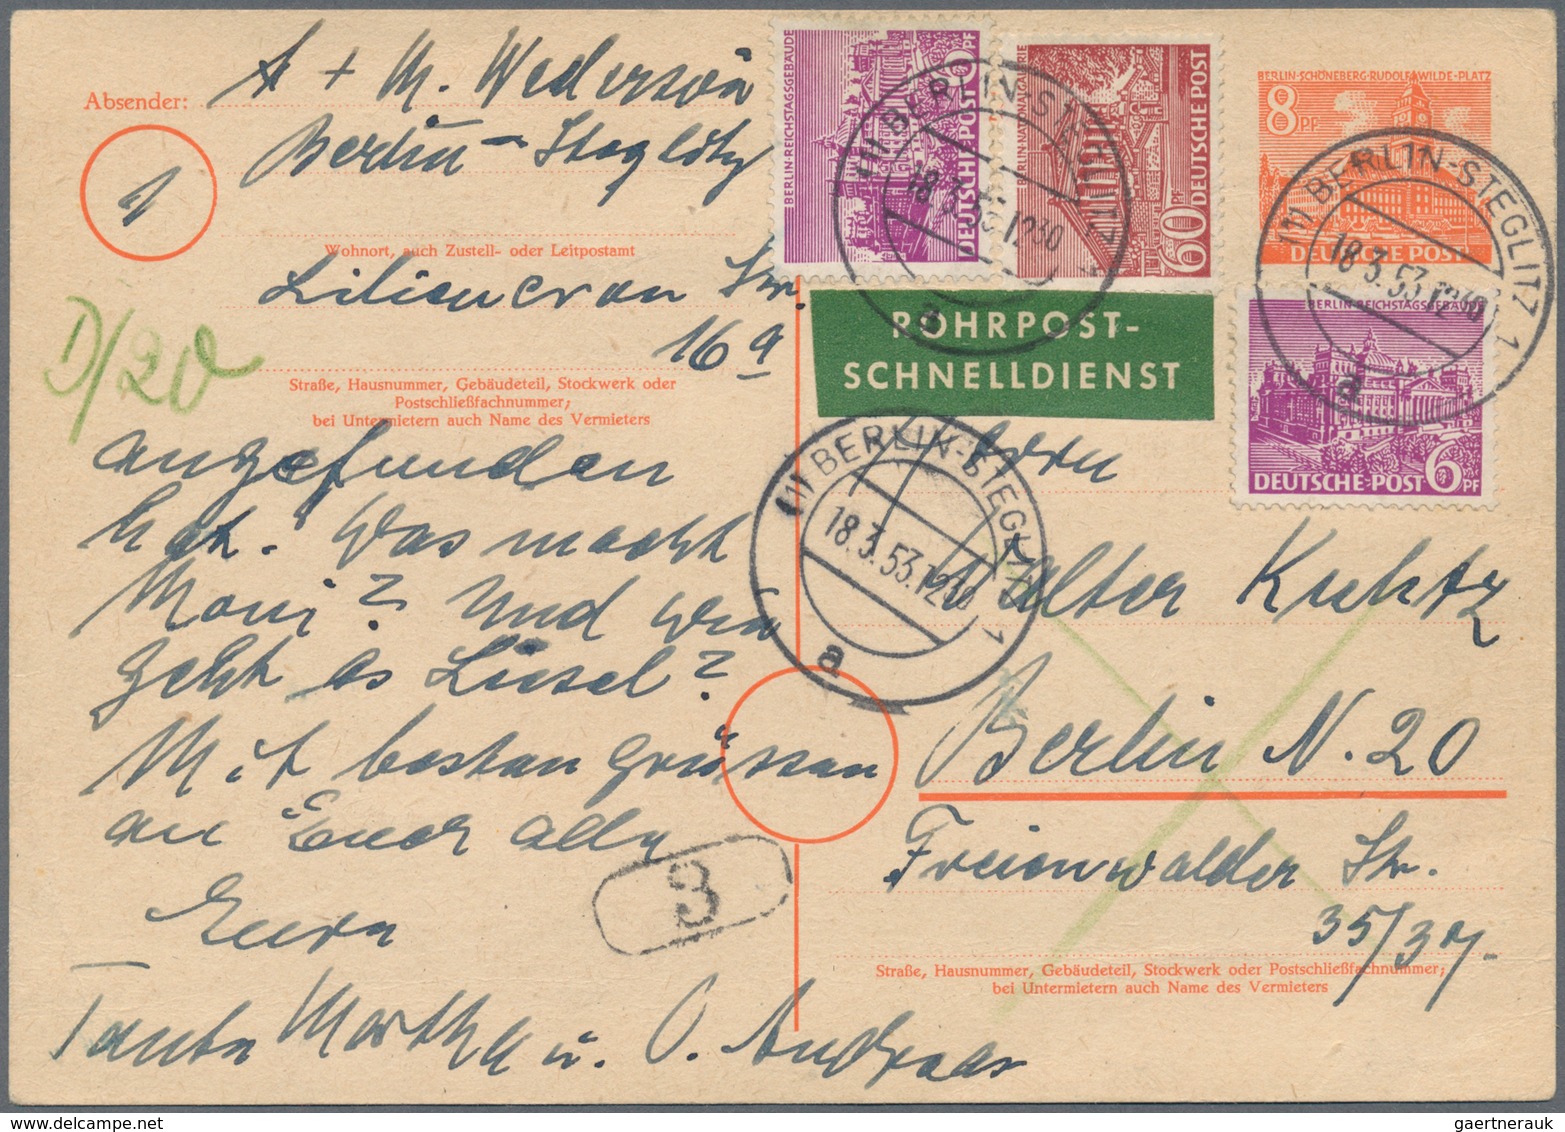 Absender:
A + M.
Berlin - Steglitz
Wohnort, auch Zustell- oder Leitpostamt
Liliencron Str.
16 a
Straße, Hausnummer, Gebäudeteil, Stockwerk oder
Postschließfachnummer;
bei Untermietern auch Name des Vermieters
D/20
angefunden
hat. Was macht
Moni? Und wie
geht es Liesel?
Mit besten Grüssen
an Euer alle
Eure
Tante Martha u. O. Andreas
3
BERLIN-REICHSTAGSGEBÄUDE
DEUTSCHE POST 6 PF
60 DEUTSCHE POST
BERLIN-SCHÖNEBERG-RUDOLF WILDE-PLATZ
8 PF
DEUTSCHE POST
BERLIN-REICHSTAGSGEBÄUDE
DEUTSCHE-POST 6 PF
(1) BERLIN-STEGLITZ 1
18.3.53.1230
a
(1) BERLIN-STEGLITZ 1
18.3.53.1230
a
(1) BERLIN-STEGLITZ 1
18.3.53.1230
a
ROHRPOST-
SCHNELLDIENST
Herrn
Walter Kuhtz
Berlin N. 20
Freienwalder Str.
35/37.
Straße, Hausnummer, Gebäudeteil, Stockwerk oder Postschließfachnummer;
bei Untermietern auch Name des Vermieters
gaertnerauk